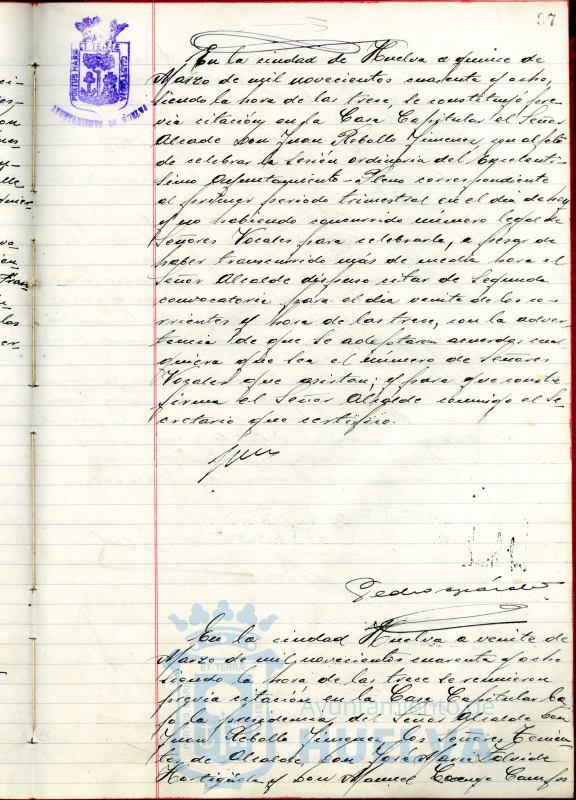 97
PORTUS MARIS
ET TERRAE CUSTODIA
AYUNTAMIENTO DE HUELVA
En la ciudad de Huelva a quince de
Marzo de mil novecientos cuarenta y ocho,
siendo la hora de las trece, se constituyó pre-
via citación en la Casa Capitular el Señor
Alcade Don Juan Rebollo Jimenez, con objeto
de celebrar la Sesión ordinaria del Excelentí-
simo Ayuntamiento-Pleno correspondiente
al primer periodo trimestral en el dia de hoy
y no habiendo concurrido número legal de
Señores Vocales para celebrarla, a pesar de
haber transcurrido más de media hora el
Señor Alcalde dispuso citar de Segunda
convocatoria para el dia veinte de los co-
rrientes y hora de las trece, con la adver-
tencia de que se adoptaran acuerdos cual
quiera que sea el número de Señores
Vocales que asistan; y para que conste
firma el Señor Alcalde conmigo el Se-
cretario que certifico.
Pedro
En la ciudad Huelva a veinte de
Marzo de mil novecientos cuarenta y ocho
siendo la hora de las trece se reunieron
previa citación en la Casa Capitular ba-
jo la presidencia del Señor Alcalde Don
Juan Rebollo Jimenez, los Señores Tenien-
tes de Alcalde, Don José María
y Don Manuel
Ayuntamiento de
HUELVA